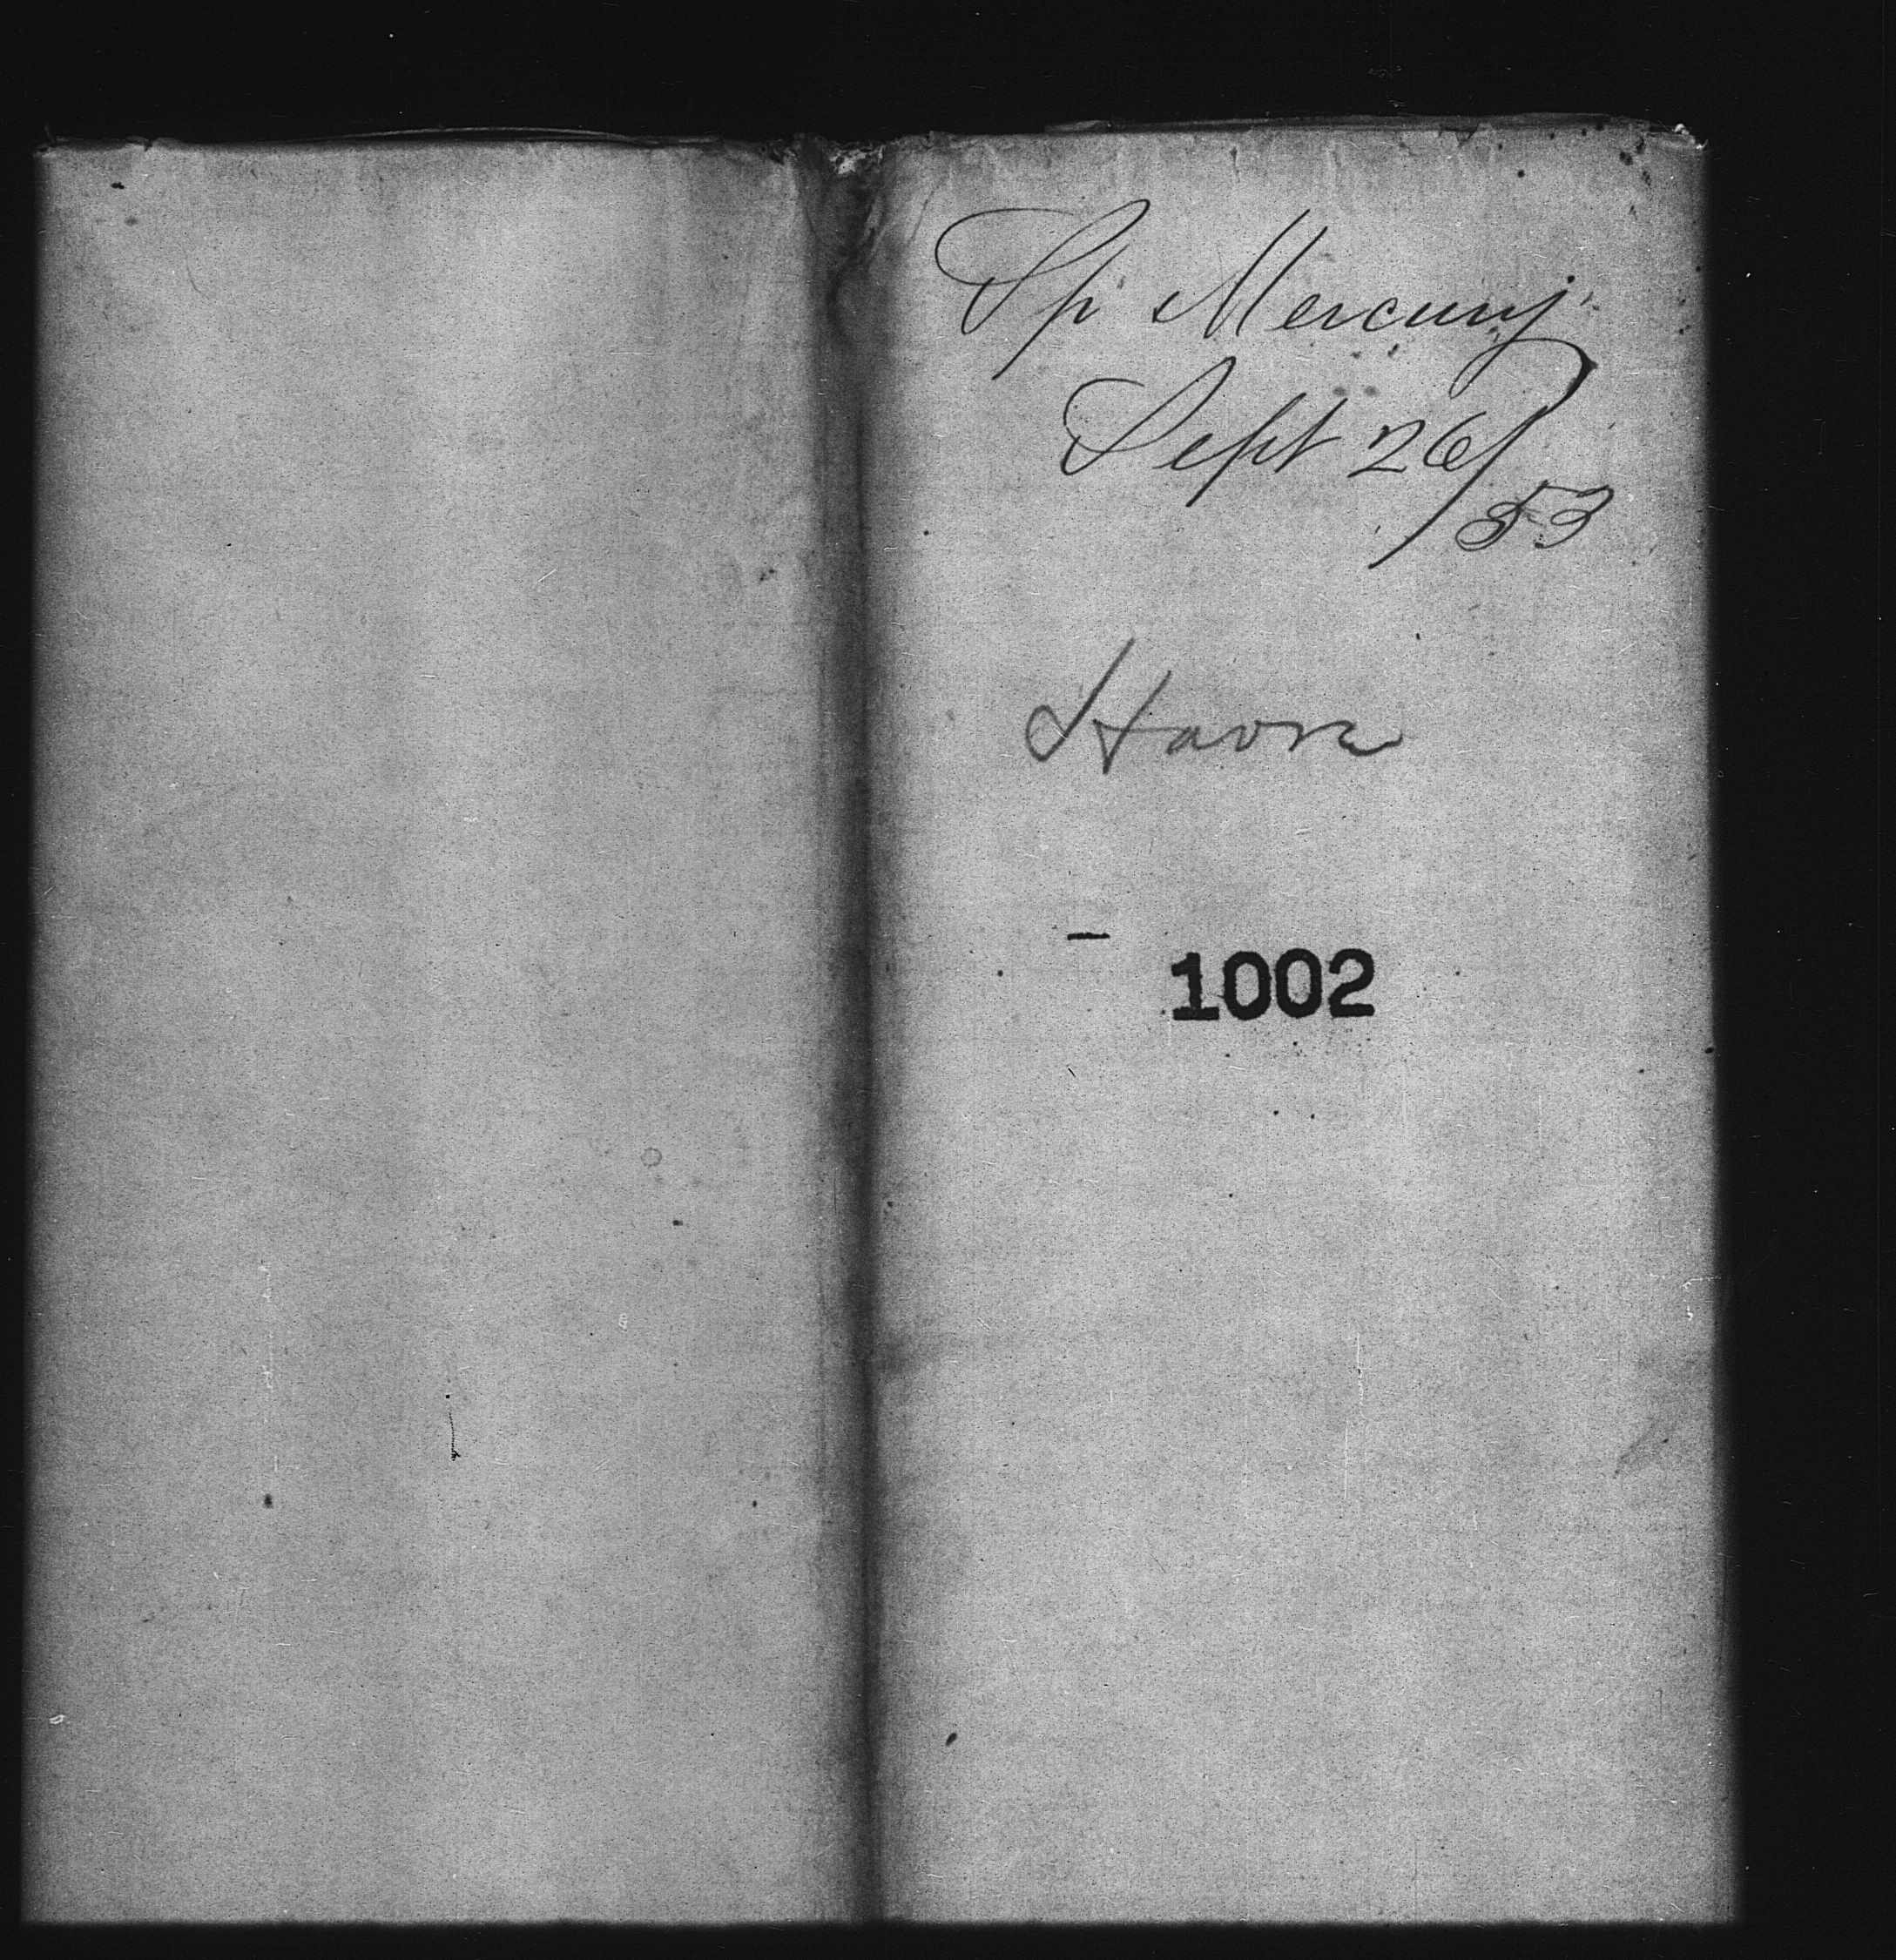 Sp Mercury
Sept 26/53
Havre
1002